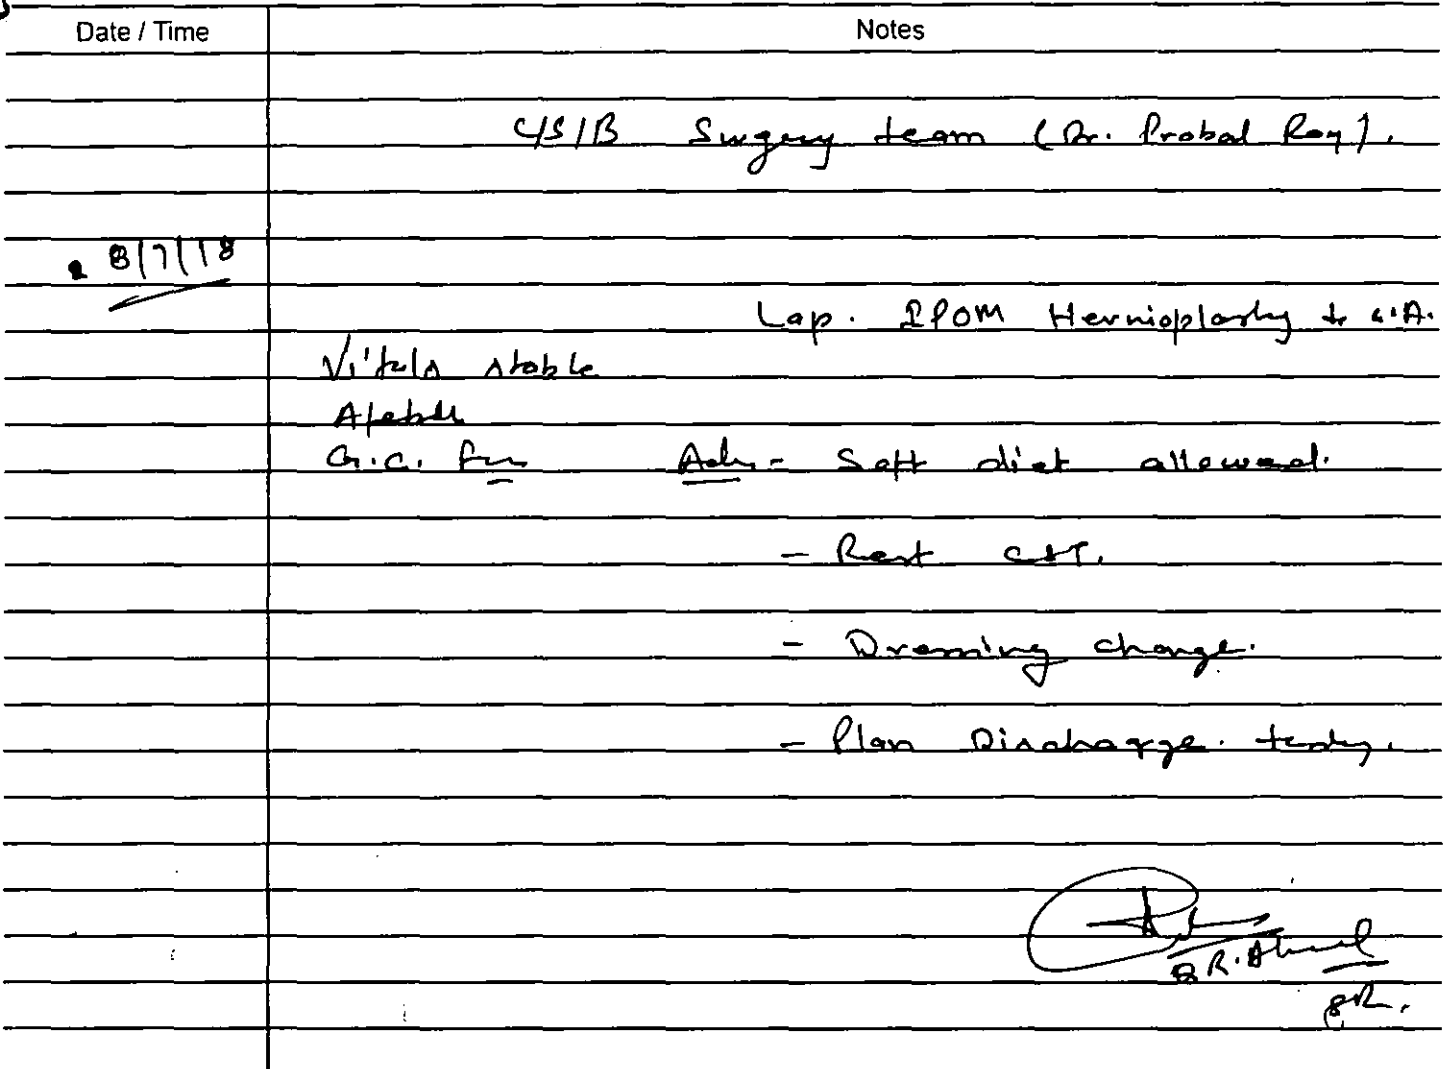 Date / Time Notes
C/S/B Surgery team (Dr. Probal Roy).
8/7/18
Lap. IPOM Hernioplasty
Vitals stable
Afebrile
G.C. fair Adv - Soft diet allowed.
- Rest CST.
- Dressing change.
- Plan Discharge. today.
SR.